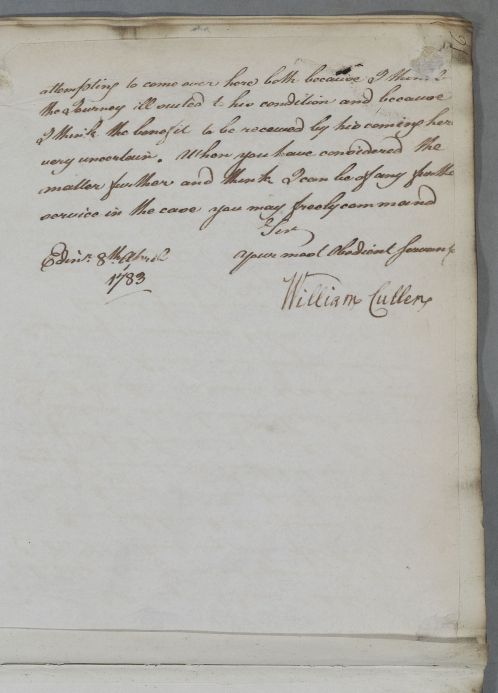 attempting to come over here both because I think
the Journey ill suited to his condition and because
I think the benefit to be received by his coming here
very uncertain. When you have considered the
matter further and think I can be of any further
service in the case you may freely command
Sir
Your most Obedient Servant
Edinr. 8th April
1783
William Cullen